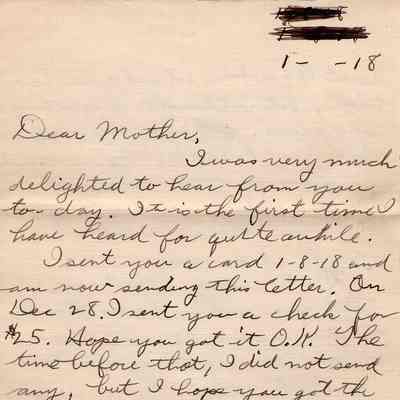 1- -18
Dear Mother,
I was very much
delighted to hear from you
to-day. It is the first time I
have heard for quite awhile.
I sent you a card 1-8-18 and
am now sending this letter. On
Dec 28. I sent you a check for
$25. Hope you got it O.K. The
time before that, I did not send
any, but I hope you got the